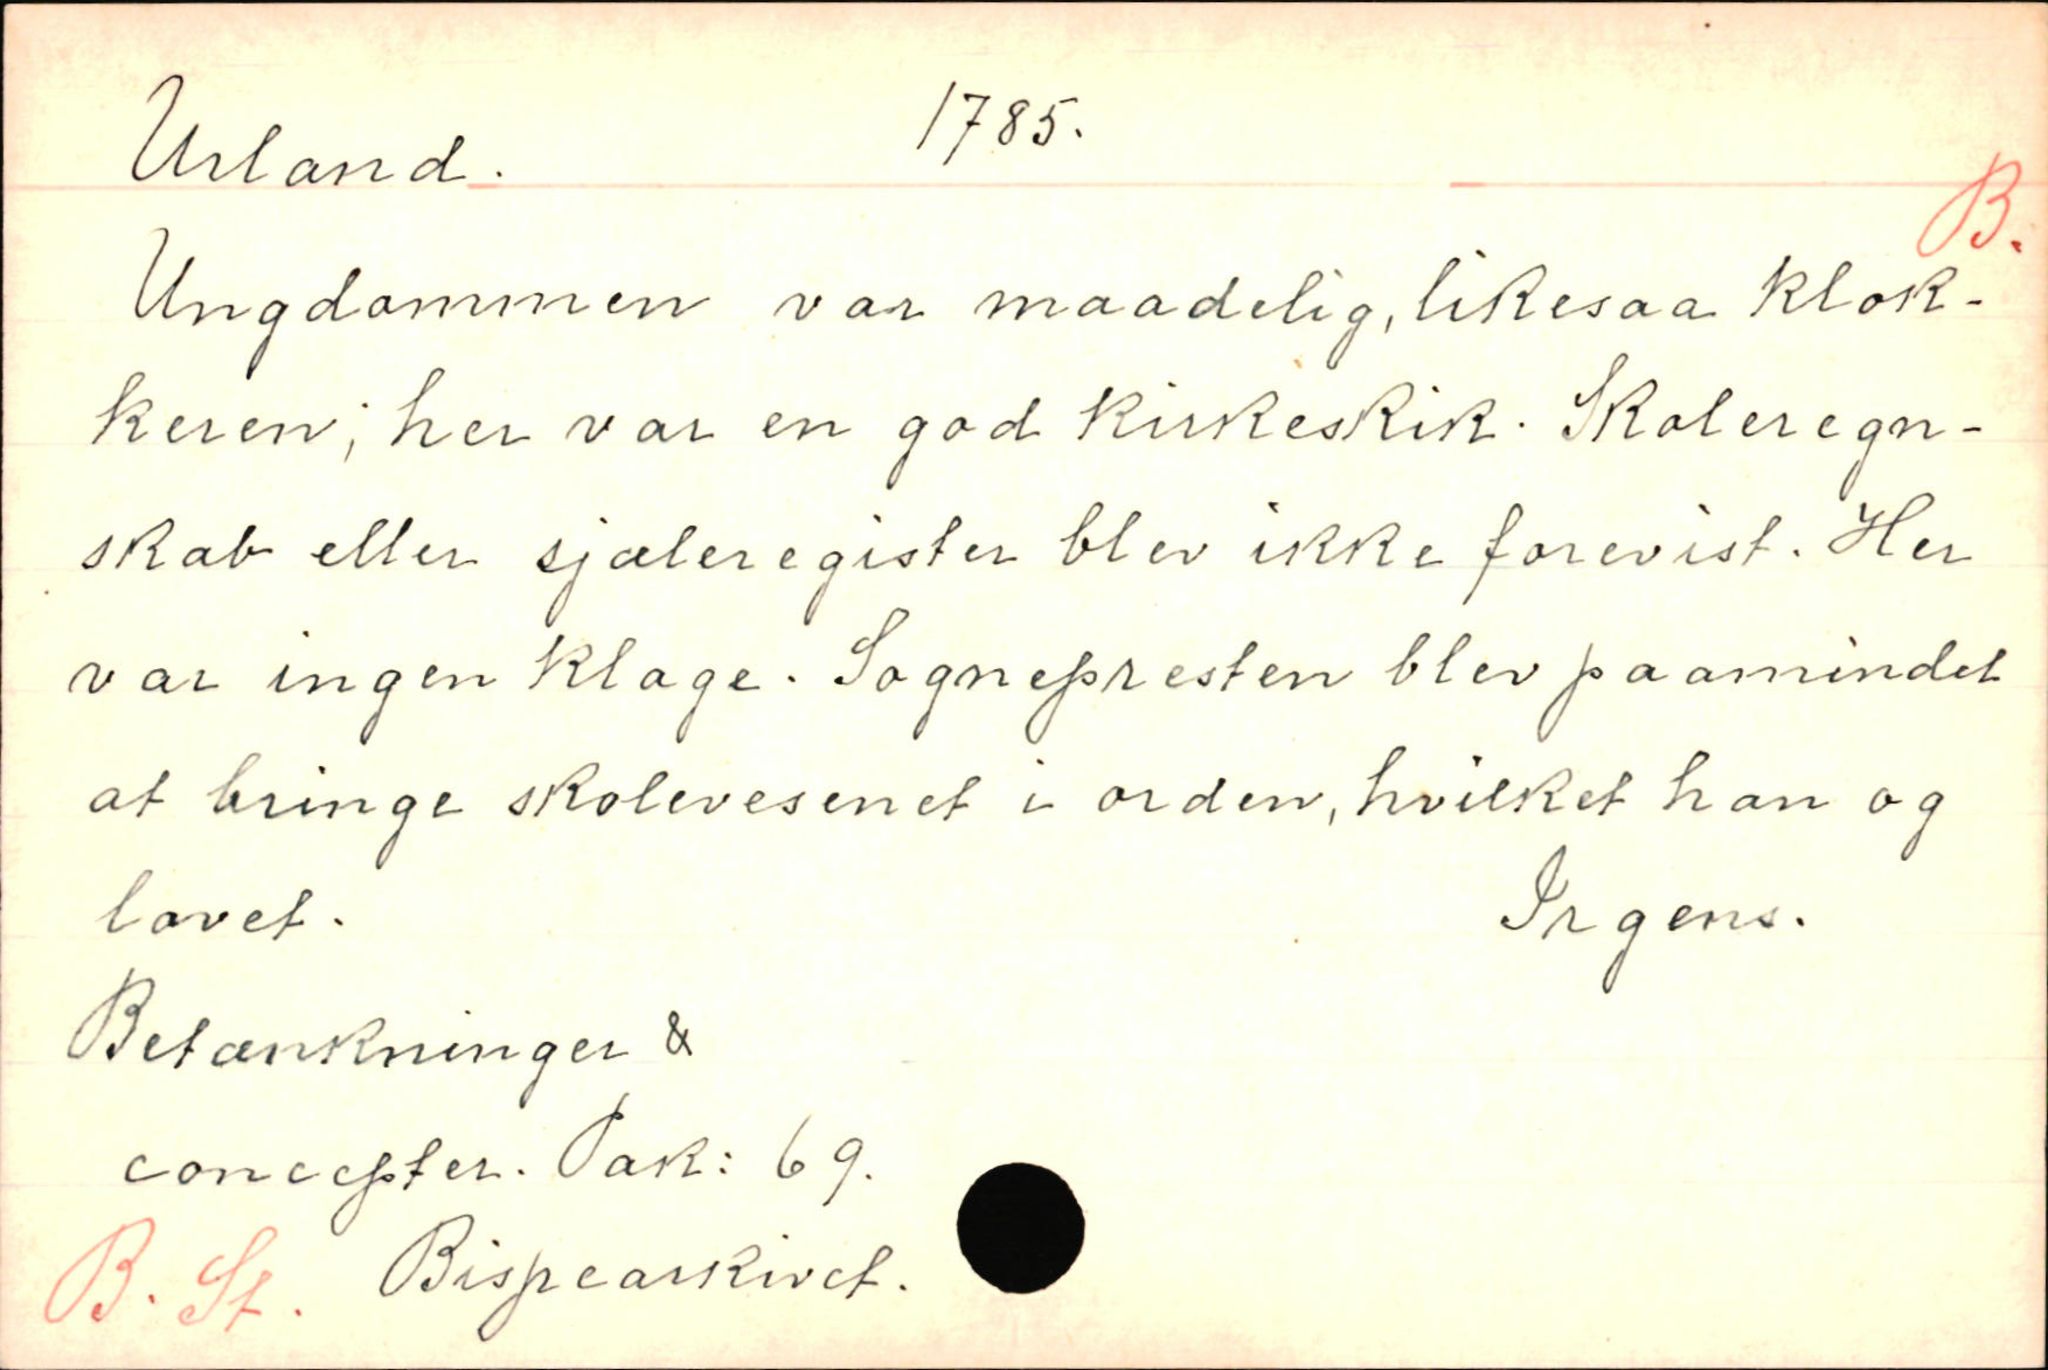 Urland. 1785.
B.
Ungdommen var maadelig, likesaa klok-
keren; her var en god kirkeskik. Skoleregn-
skab eller sjæleregister blev ikke forevist. Her
var ingen klage. Sognepresten blev paamindet
at bringe skolevesenet i orden, hvilket han og
lovet. Irgens.
Betænkninger &
concepter. Pak: 69.
B. St. Bispearkivet.